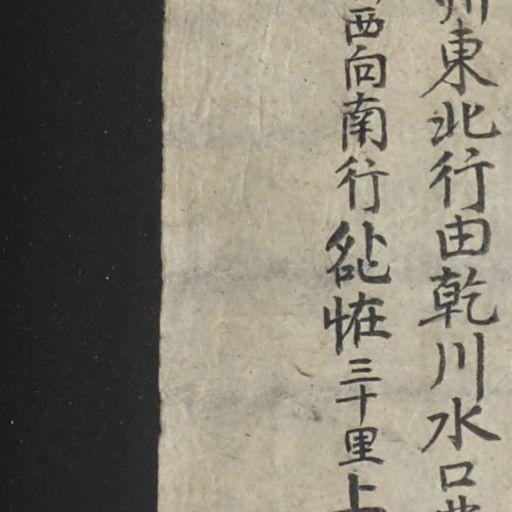 東北行由乾川水口
西向南行𨚫恠三十里上